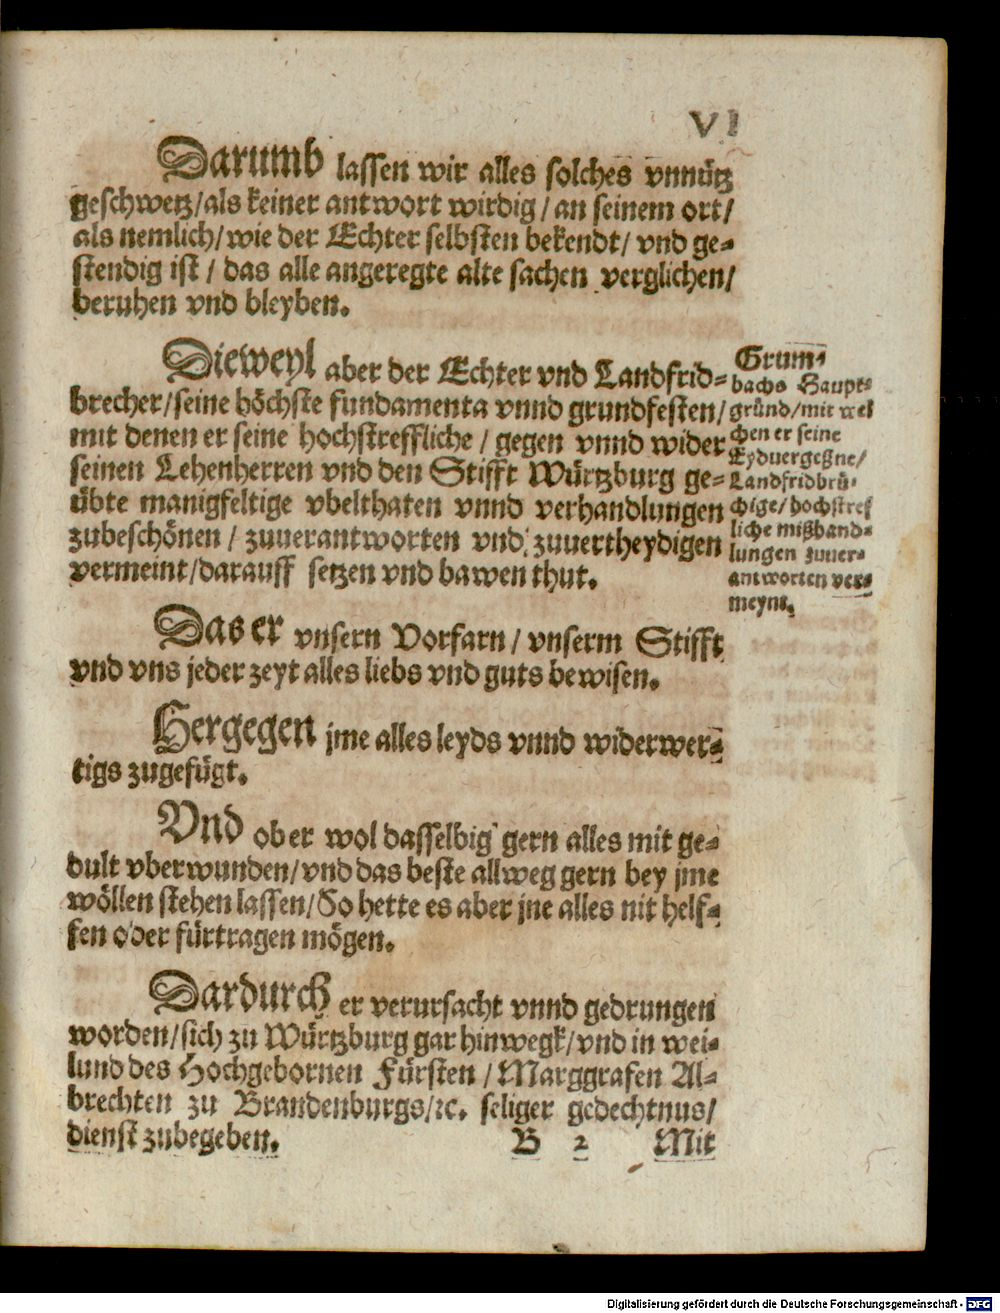 VI
Darumb lassen wir alles solches vnnütz
geschwetz/als keiner antwort wirdig/an seinem ort/
als nemlich/wie der Echter selbsten bekendt/vnd ge-
stendig ist/das alle angeregte alte sachen verglichen/
beruhen vnd bleyben.
Dieweyl aber der Echter vnd Landfrid-
brecher/seine höchste fundamenta vnnd grundfesten/
mit denen er seine hochstreffliche/gegen vnnd wider
seinen Lehenherren vnd den Stifft Würtzburg ge-
übte manigfeltige vbelthaten vnnd verhandlungen
zubeschönen/zuuerantworten vnd zuuertheydigen
vermeint/darauff setzen vnd bawen thut.
Grum-
bachs Haupt-
gründ/mit wel
chen er seine
Eydvergeßne/
Landfridbrü-
chige/hochstref
liche mißhand-
lungen zuuer-
antworten ver-
meynt.
Das er vnsern Vorfarn/vnserm Stifft
vnd vns jeder zeyt alles liebs vnd guts bewisen.
Hergegen jme alles leyds vnnd widerwer-
tigs zugefügt.
Vnd ob er wol dasselbig gern alles mit ge-
dult vberwunden/vnd das beste allweg gern bey jme
wöllen stehen lassen/So hette es aber jne alles nit helf-
fen oder fürtragen mögen.
Dardurch er verursacht vnnd gedrungen
worden/sich zu Würtzburg gar hinwegk/vnd in wei-
lund des Hochgebornen Fürsten/Marggrafen Al-
brechten zu Brandenburgs/ꝛc. seliger gedechtnus/
dienst zubegeben.
B 2 Mit
Digitalisierung gefördert durch die Deutsche Forschungsgemeinschaft - DFG